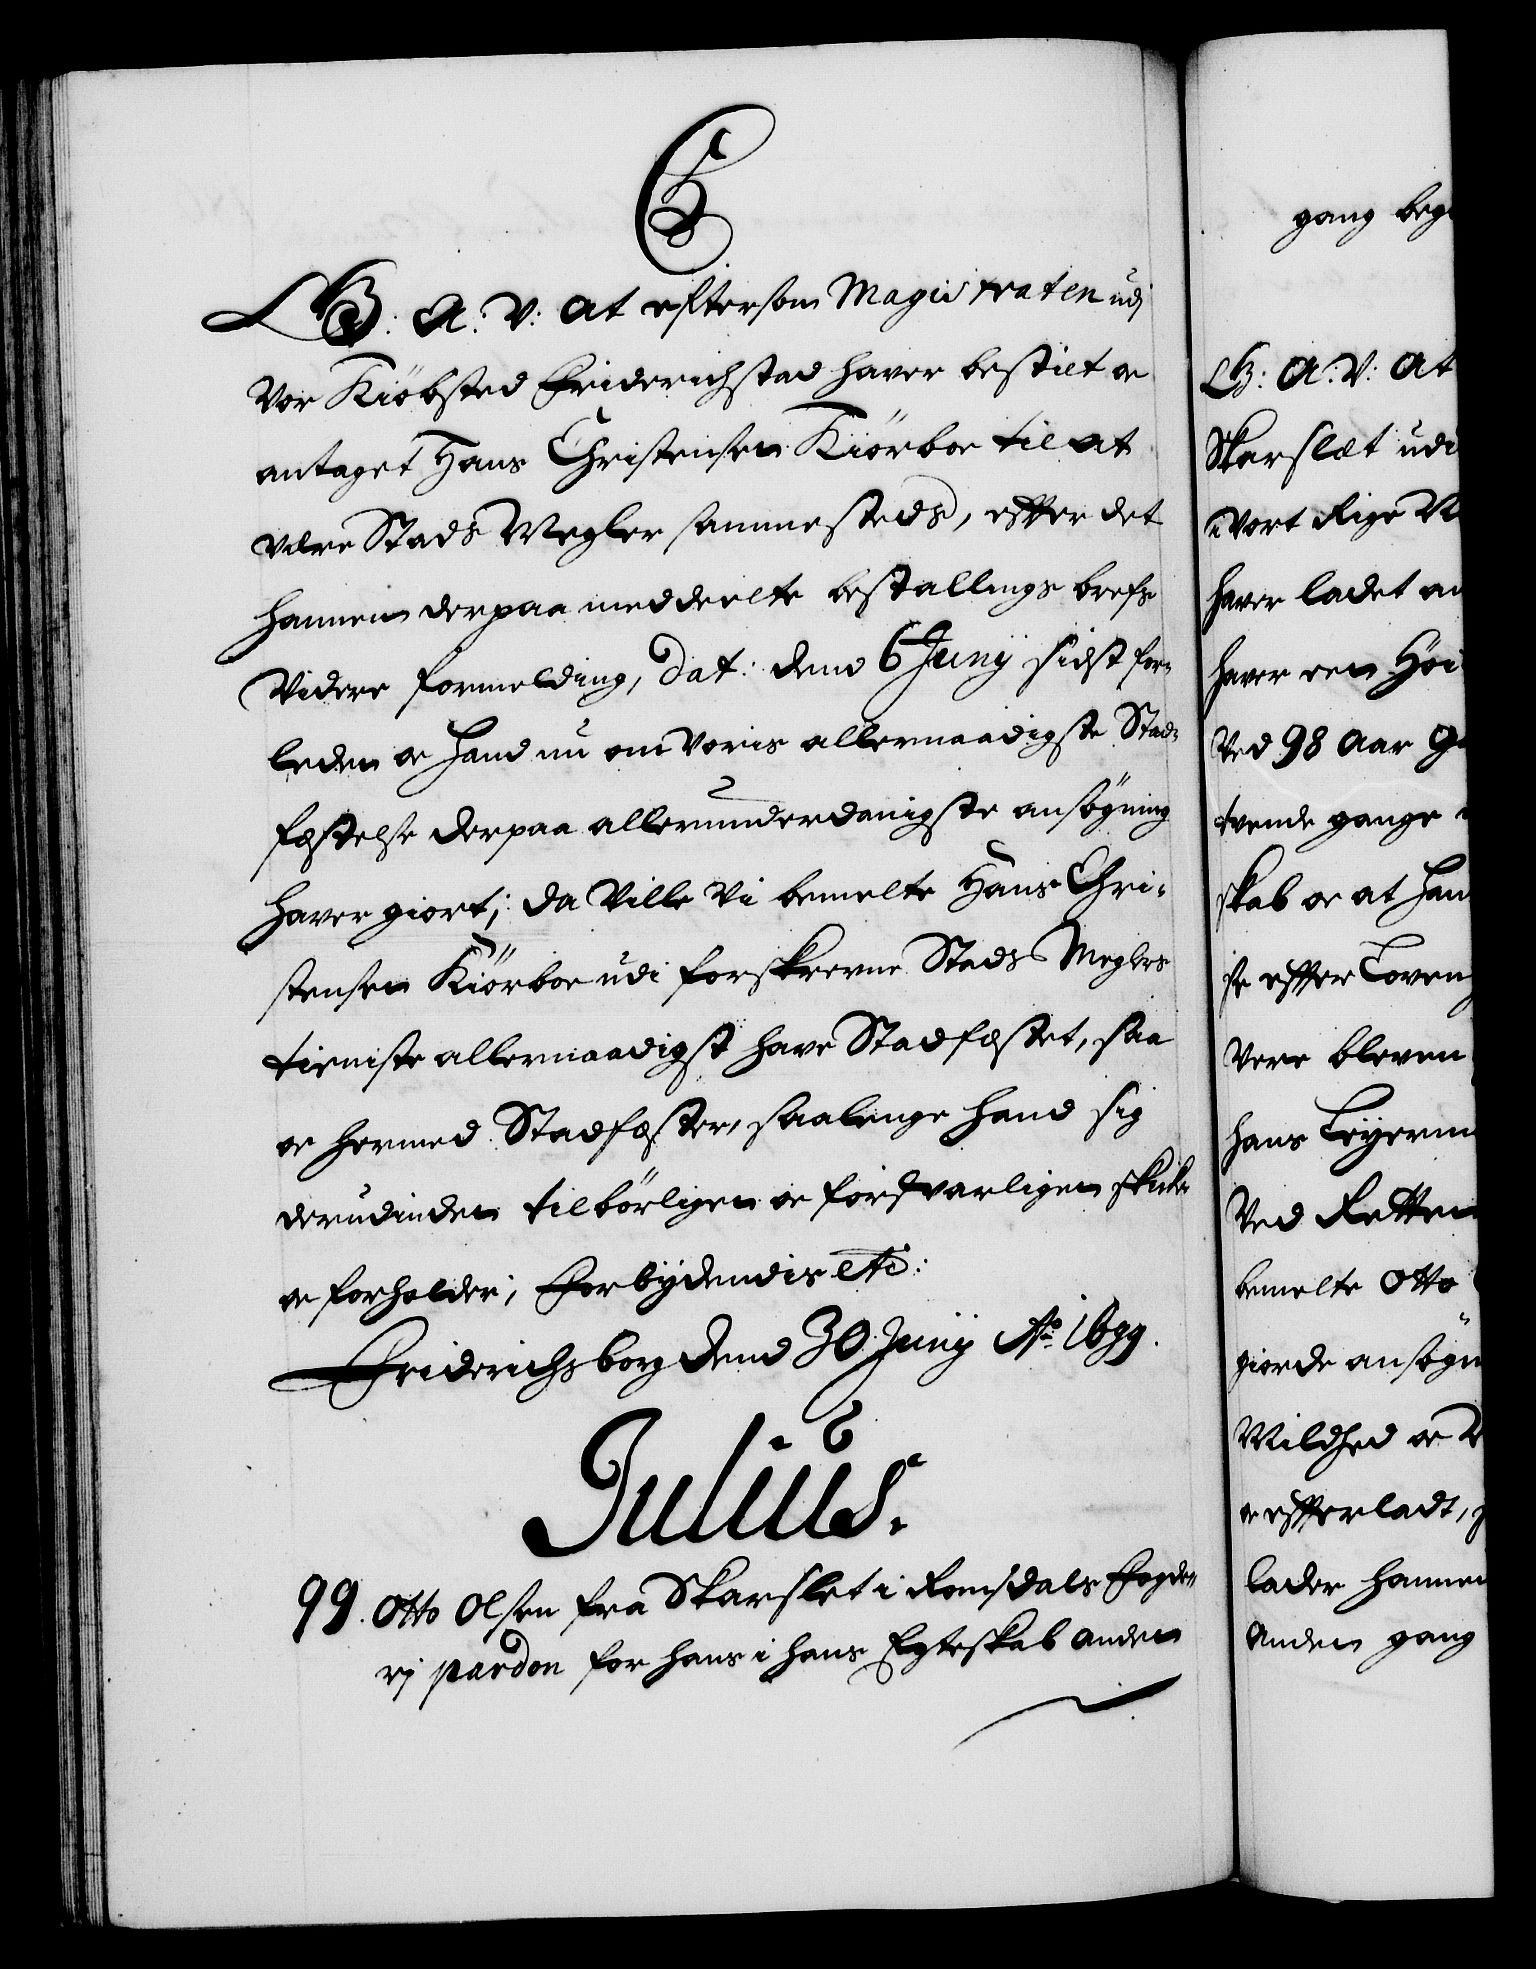 G: A: V: At eftersom Magistraten udj
vor Kiöbsted Friderichstad haver bestilt oc
antaget Hans Christensen Kiörboe til at
være Stads Megler sammesteds, effter det
hannem derpaa meddeelte bestallings brefs
videre formelding, dat: dend 6 Junij sidst for„
leden oc hand nu om voris allernaadigste Stad„
festelse derpaa allerunderdanigste ansögning
haver giort; da ville vi bemelte Hans Chri„
stensen Kiörboe udi forskrevne Stads Meglers
tieniste allernaadigst have Stadfestet, saa
oc hermed Stadfester, saalenge hand sig
derudinden tilbörligen oc forsvarligen skicker
oc forholder; Forbydendis etc:
Friderichsborg dend 30 Junij Ao 1699.
Julius.
99. Otto Olsen fra Skarslet i Romsdals Fogde„
rj pardon for hans i hans Egteskab anden
gang beg
G: A: V: At
Skarslet udi
i vort Rige N
haver ladet an
haver een Höi
ved 98 Aar
tvende gange
skab oc at han
se effter Loven
vere bleven
hans Leyerm
ved Retten
bemelte Otto
giorde ansögn
Mildhed oc
oc effterladt,
lader hannem
anden gang